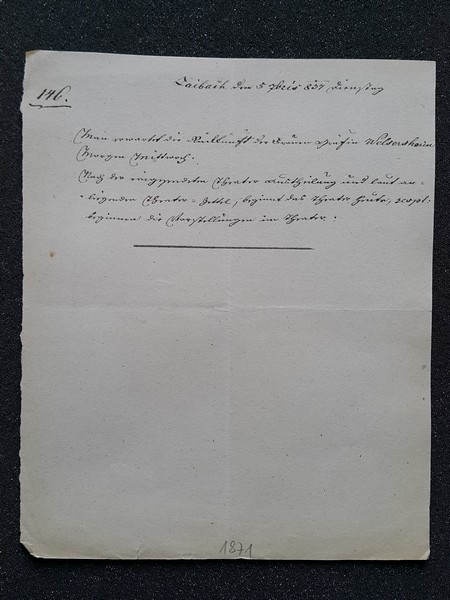 Laibach den 5 7bris 837 Dienstag
146.
Man erwartet die Rückkunft der Frauen Gräfin Welsersheim
Morgen Mittwoch.
Nach der eingesendeten Theater Austheilung und laut an-
-liegenden Theater-Zettel, beginnt das Theater heute,
beginnen die Vorstellungen im Theater.
1871